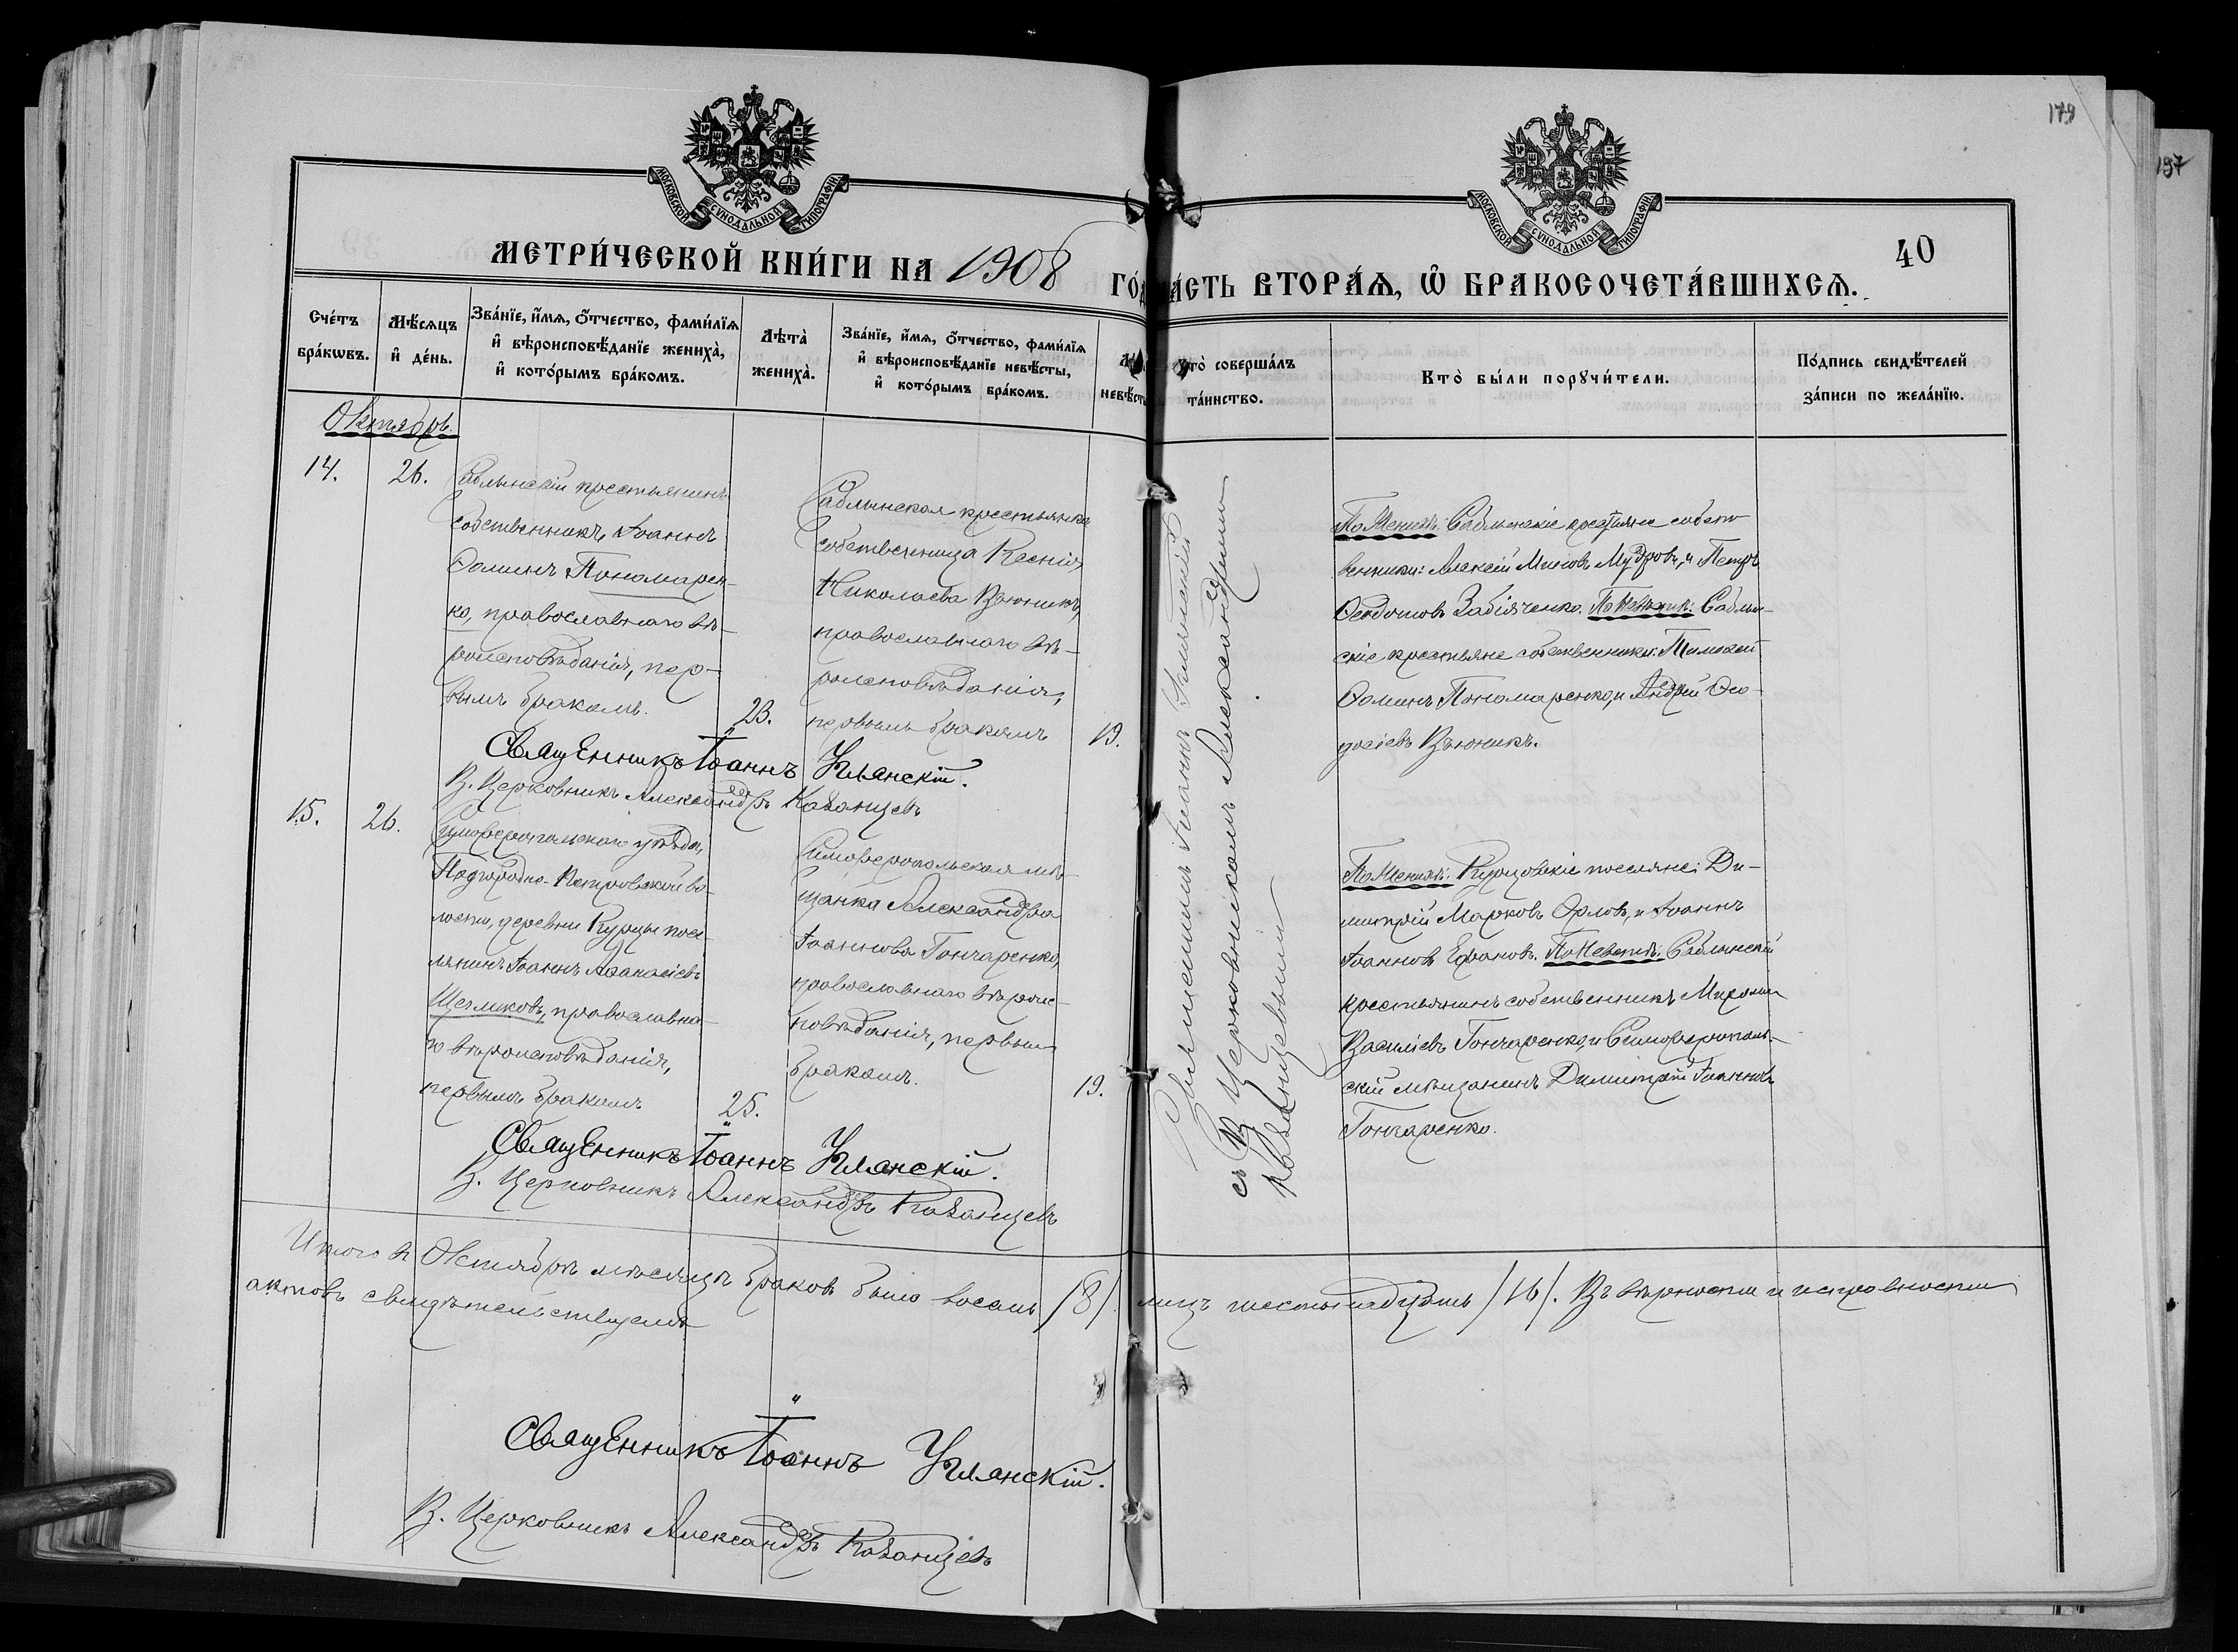 179
197
МОСКОВСКОЙ СУНОДАЛЬНОЙ ТИПОГРАФІИ
МОСКОВСКОЙ СУНОДАЛЬНОЙ ТИПОГРАФІИ
40
МЕТРИ́ЧЕСКОЙ КНИ́ГИ НА 1908 ГО́Д
А́СТЬ ВТОРА́Ѧ, Ѽ БРАКОСОЧЕТА́ВШИХСѦ.
Сче́тъ бра́кѡвъ.
Мѣ́сяцъ и҆ де́нь.
Зва́нїе, и҆́мѧ, ѻ҆́тчество, фами́лїѧ
и҆ вѣроисповѣ́данїе жениха̀,
и҆ кото́рымъ бра́комъ.
Лѣта̀ жениха̀.
Зва́нїе, и҆́мѧ, ѻ҆́тчество, фами́лїѧ
и҆ вѣроисповѣ́данїе невѣ́сты,
и҆ кото́рымъ бра́комъ.
невѣ́сты
то̀ соверша́лъ
та́инство.
Кто̀ бы́ли порꙋчи́тели.
По́дпись свидѣ́телей
за́писи по жела́нїю.
Октябрь.
14.
26.
Саблынскій крестьянинъ
собственникъ Іоаннъ
Ѳоминъ Пономарен-
ко, православнаго вѣ-
роисповѣданія, пер-
вымъ бракомъ.
23.
Саблынская крестьянка
собственница Ксенія
Николаева Вьюникъ,
православнаго вѣ-
роисповѣданія,
первымъ бракомъ
19.
По Женихѣ: Саблынскіе крестьяне собст
венники: Алексій Мудровъ, и Петръ
Ѳеодотовъ Забіяченко. По Невѣстѣ: Саблын-
скіе крестьяне собственники: Тимоѳей
Ѳоминъ Пономаренко, и Андрей Ѳео-
досіевъ Вьюникъ.
Священникъ Іоаннъ Углянскій.
В. Церковникъ Александръ Казанцевъ
15.
26.
Симферопольскаго уѣзда,
Подгородно-Петровской во-
лости, деревни Курцы посе-
лянинъ Іоаннъ Аѳанасіевъ
Щегликовъ, православна-
го вѣроисповѣданія,
первымъ бракомъ
25.
Симферопольская мѣ-
щанка Александра
Іоаннова Гончаренко,
православнаго вѣроис-
повѣданія, первымъ
бракомъ.
19.
По Женихѣ: Курцовскіе поселяне: Ди-
митрій Марковъ Орловъ, и Іоаннъ
Іоанновъ Ефановъ. По Невѣстѣ: Саблынскій
крестьянинъ собственникъ Миронъ
Василіевъ Гончаренко, и Симферополь-
скій мѣщанинъ Димитрій Іоанновъ
Гончаренко.
Священникъ Іоаннъ Углянскій.
В. Церковникъ Александръ Казанцевъ
Священникъ Іоаннъ Углянскій
съ В. Церковникомъ Александромъ
Казанцевымъ
Итого въ Октябрѣ мѣсяцѣ браковъ было восемь /8/. лицъ шестьнадцать /16/. Въ вѣрности и исправности
актовъ свидѣтельствуемъ
Священникъ Іоаннъ Углянскій.
В. Церковникъ Александръ Казанцевъ